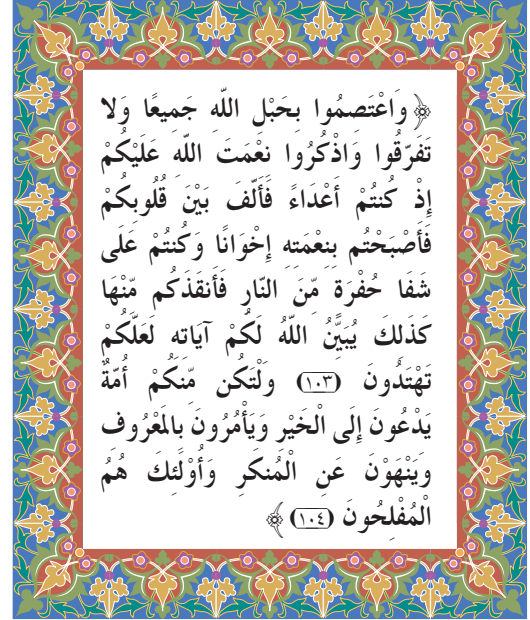 ﴿ وَاعْتَصِمُوا بِحَبْلِ اللّهِ جَمِيعًا وَلا
تَفَرَّقُوا وَاذْكُرُوا نِعْمَتَ اللّهِ عَلَيْكُمْ
إِذْ كُنتُمْ أَعْدَاءً فَأَلَّفَ بَيْنَ قُلُوبِكُمْ
فَأَصْبَحْتُم بِنِعْمَتِهِ إِخْوَانًا وَكُنتُمْ عَلَى
شَفَا حُفْرَةٍ مِّنَ النَّارِ فَأَنقَذَكُم مِّنْهَا
كَذَلِكَ يُبَيِّنُ اللّهُ لَكُمْ آيَاتِهِ لَعَلَّكُمْ
تَهْتَدُونَ (١٠٣) وَلْتَكُن مِّنكُمْ أُمَّةٌ
يَدْعُونَ إِلَى الْخَيْرِ وَيَأْمُرُونَ بِالمَعْرُوفِ
وَيَنْهَوْنَ عَنِ الْمُنكَرِ وَأُوْلَئِكَ هُمُ
الْمُفْلِحُونَ (١٠٤) ﴾